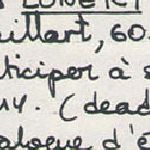 illart, 60
ticiper à s
14. (dead
alogue d'é